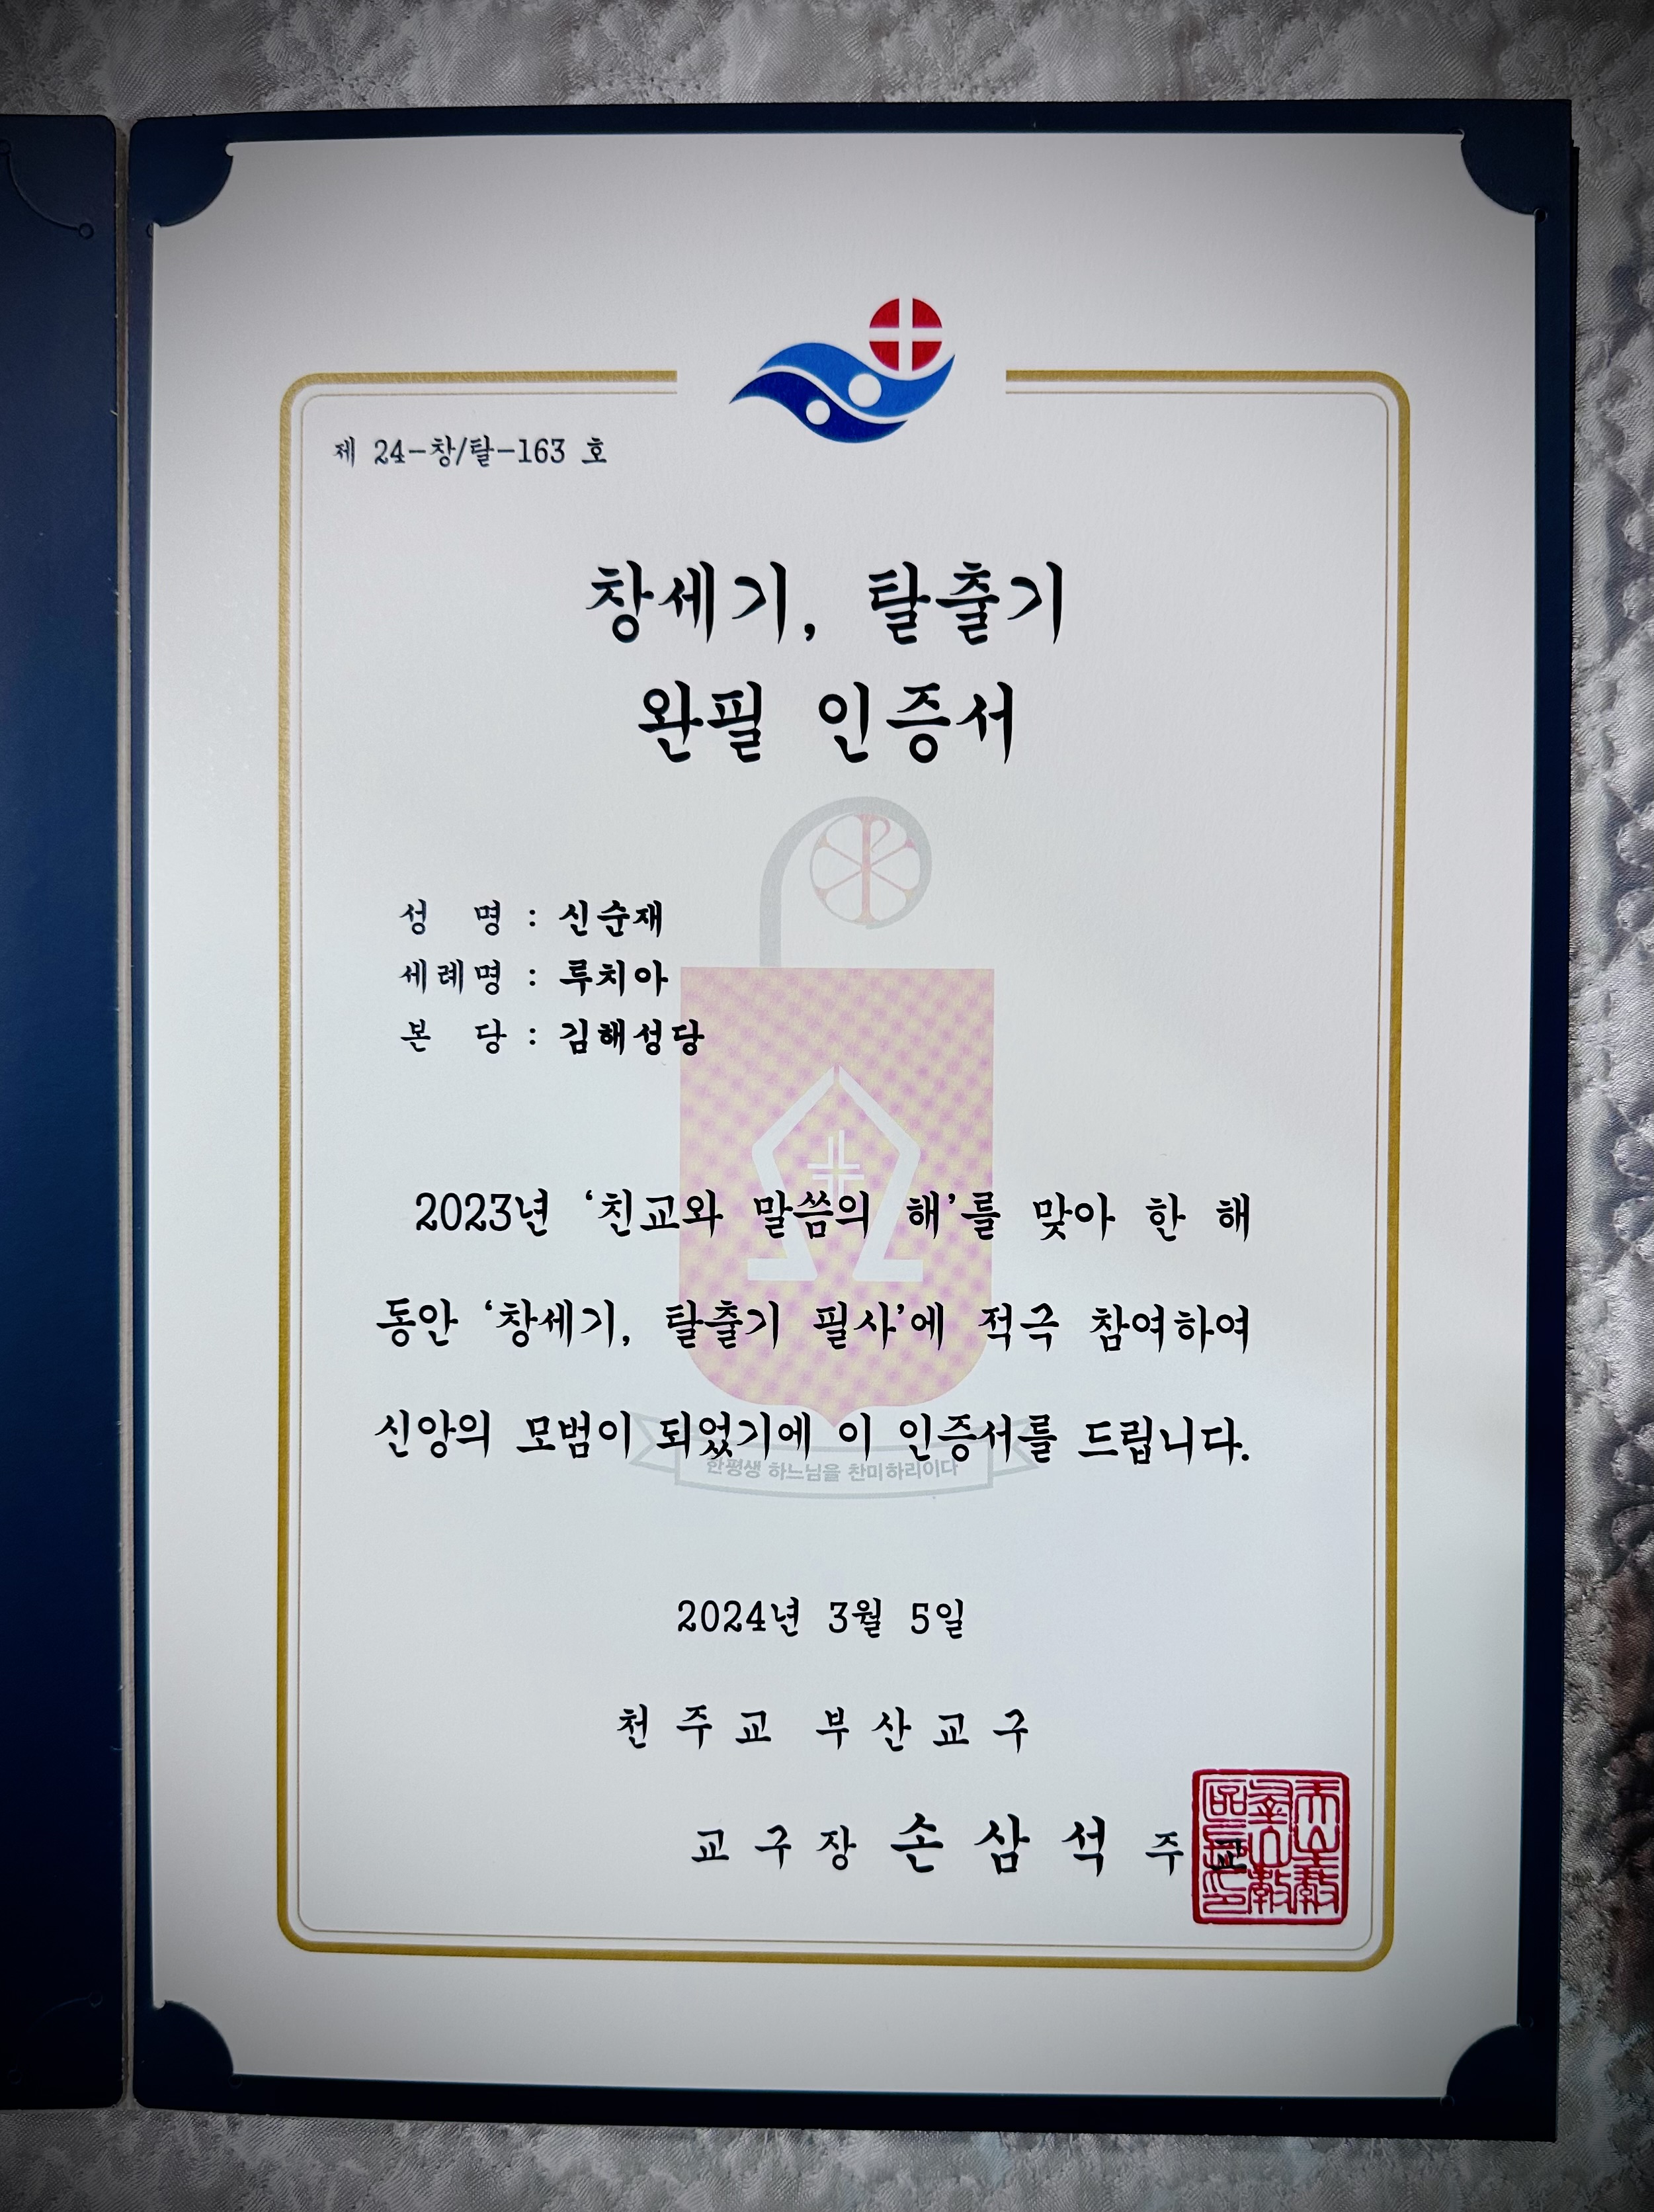 제 24-창/탈-163 호
창세기, 탈출기
완필 인증서
성 명 : 신순재
세례명 : 루치아
본 당 : 김해성당
2023년 ‘친교와 말씀의 해’를 맞아 한 해
동안 ‘창세기, 탈출기 필사’에 적극 참여하여
신앙의 모범이 되었기에 이 인증서를 드립니다.
한평생 하느님을 찬미하리이다
2024년 3월 5일
천주교 부산교구
교구장 손삼석 주교